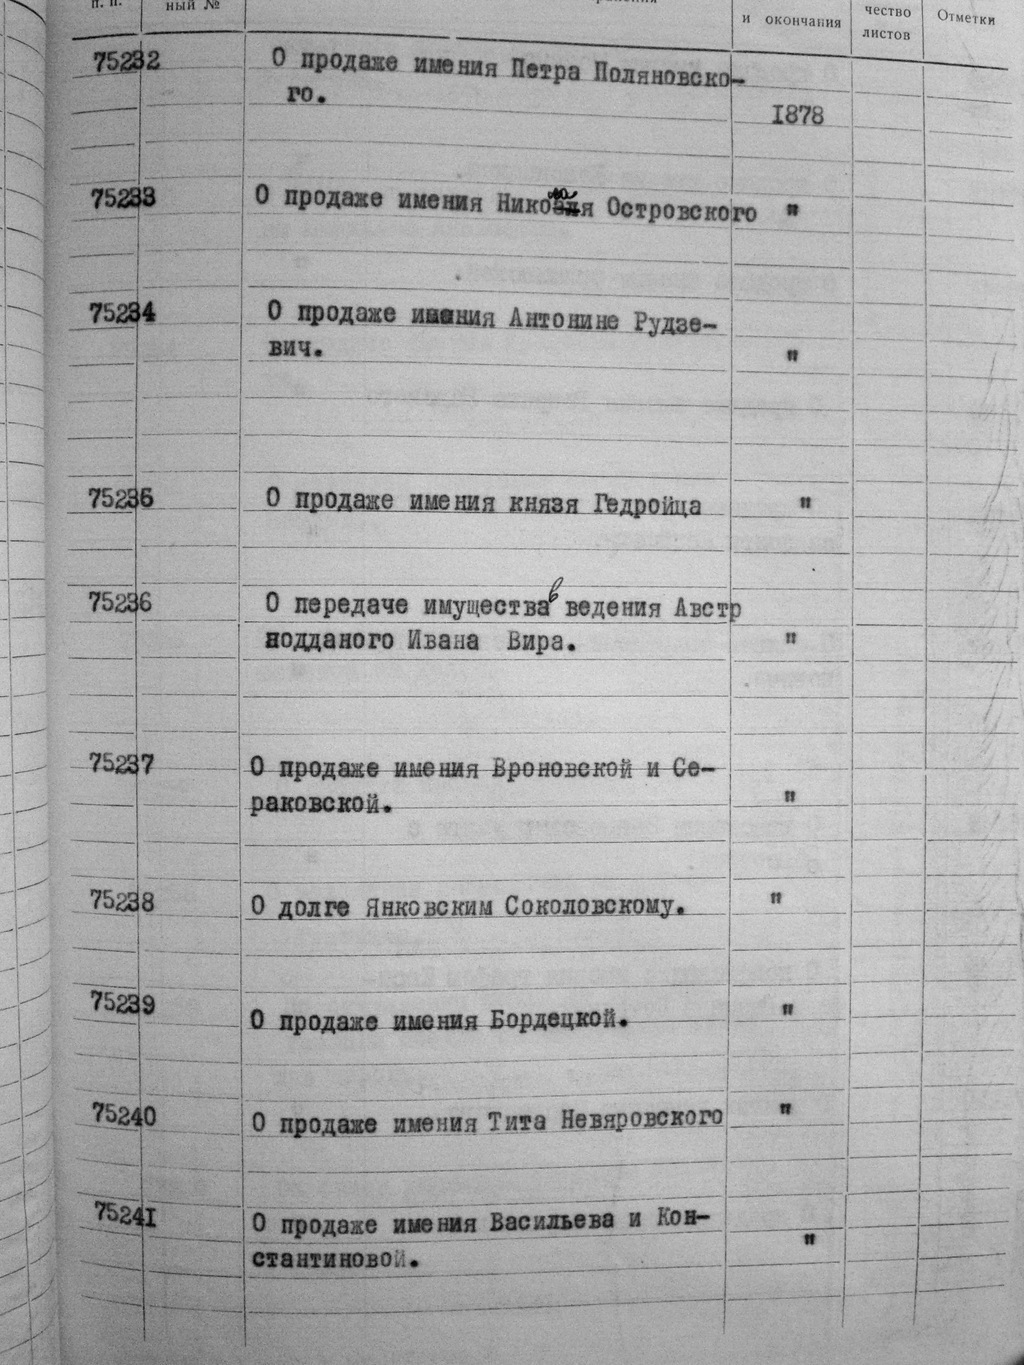 п. п.
ный №
и окончания
чество
листов
Отметки
75232 О продаже имения Петра Поляновско-
го.
1878
75233 О продаже имения Николая Островского "
75234 О продаже имения Антонине Рудзе-
вич.
"
75236 О продаже имения князя Гедройца "
75236 О передаче имущества в ведения Австр
подданого Ивана Вира.
"
75237 О продаже имения Вроновской и Се-
раковской.
"
75238 О долге Янковским Соколовскому. "
75239 О продаже имения Бордецкой. "
75240 О продаже имения Тита Невяровского "
75241 О продаже имения Васильева и Кон-
стантиновой.
"